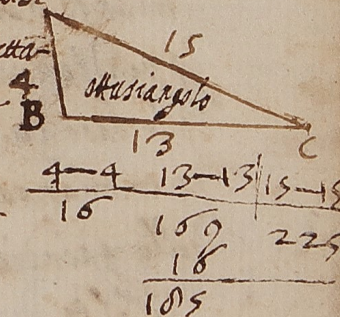 15
4 ottusiangolo
B
13 C
4—4 13—13 15—15
16 169 225
16
185